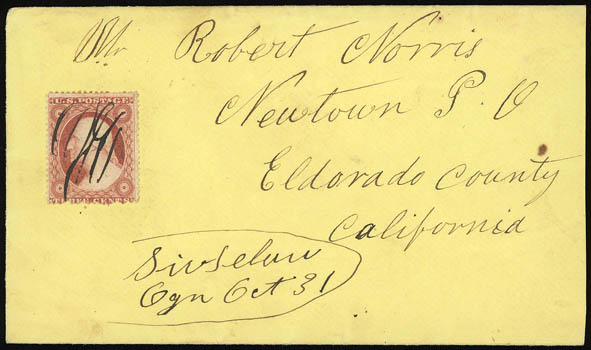 Mr Robert Norris
Newtown P. O
Eldorado County
California
U.S. POSTAGE
THREE CENTS
Ogn Oct 31